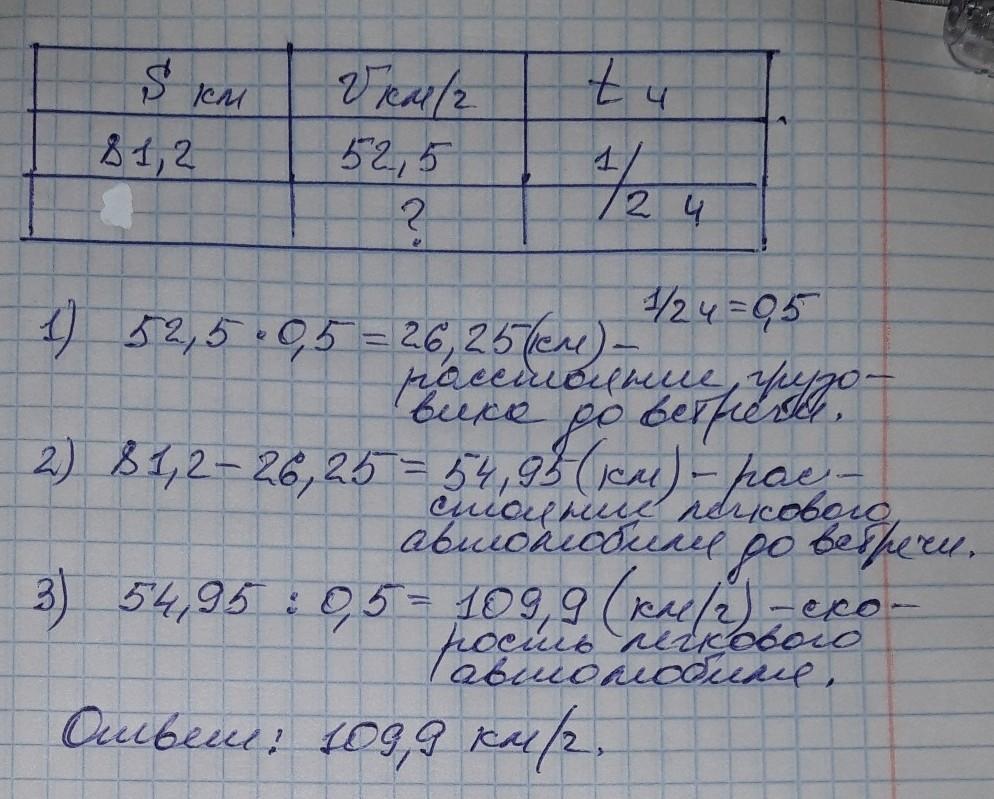 S км V км/г t ч
81,2 52,5 1/2 ч
?
1/2 ч = 0,5
1) 52,5 · 0,5 = 26,25 (км) –
расстояние грузо-
вика до встречи.
2) 81,2 – 26,25 = 54,95 (км) – рас-
стояние легкового
автомобиля до встречи.
3) 54,95 : 0,5 = 109,9 (км/г) – ско-
рость легкового
автомобиля.
Ответ: 109,9 км/г.